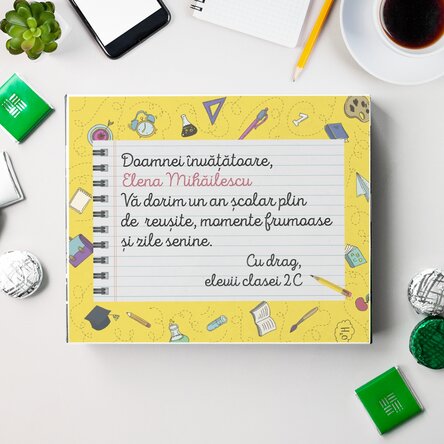 Doamnei învățătoare,
Elena Mihăilescu
Vă dorim un an școlar plin
de reușite, momente frumoase
și zile senine.
Cu drag,
elevii clasei 2C
1
H₂O